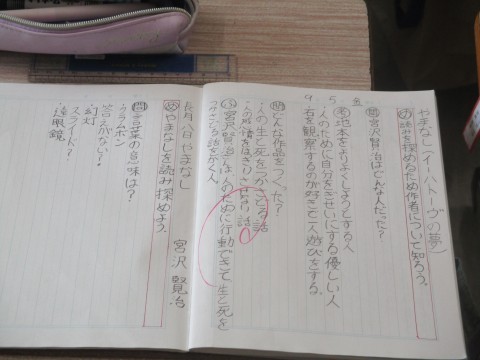 やまなし(イーハトーヴの夢)
め 読みを深めるため作者について知ろう。
問 宮沢賢治はどんな人だった?
考 地本をよりよくしようとする人
・人のために自分をぎせいにする優しい人
・石を観察するのが好きで一人遊びをする。
問 どんな作品をつくった?
・人の生と死をつかさどる話
宮沢賢治さんは人のために行動できて生と死を
つかさどる話をかく人
月八日 やまなし 宮沢 賢治
め やまなしを読み深めよう。
問 言葉の意味は?
・クラムボン
答えがない?
・幻灯
スライド?
・遠眼鏡